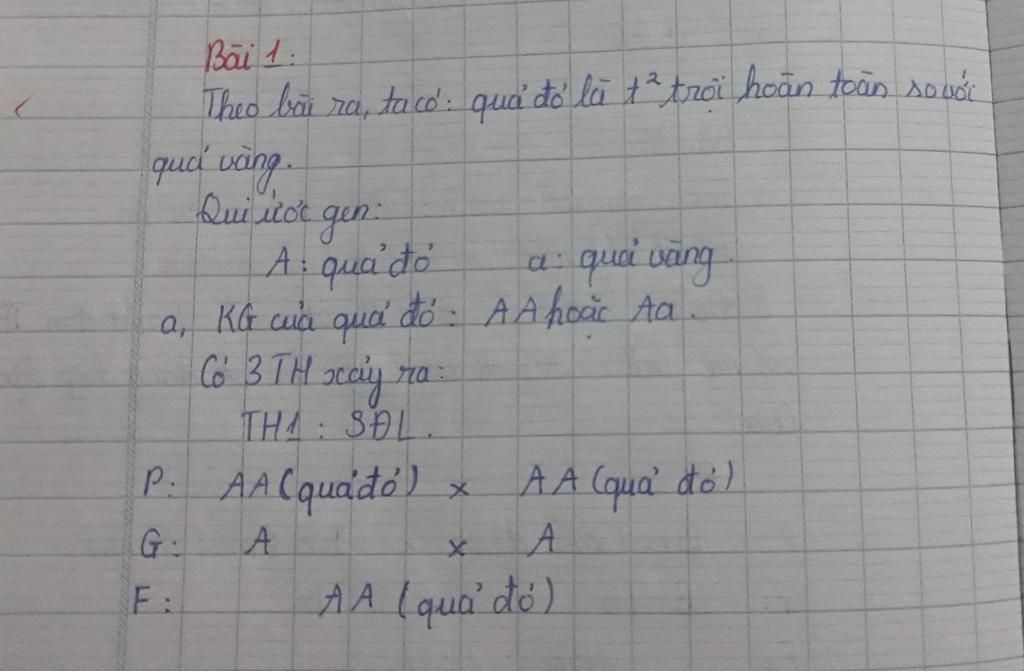 Bài 1:
Theo bài ra, ta có: quả đỏ là t² trội hoàn toàn so với
quả vàng.
Qui ước gen:
A: quả đỏ a: quả vàng.
a, KG của quả đỏ: AA hoặc Aa.
Có 3 TH xảy ra:
TH1: SĐL.
P: AA (quả đỏ) x AA (quả đỏ)
G: A x A
F: AA (quả đỏ)